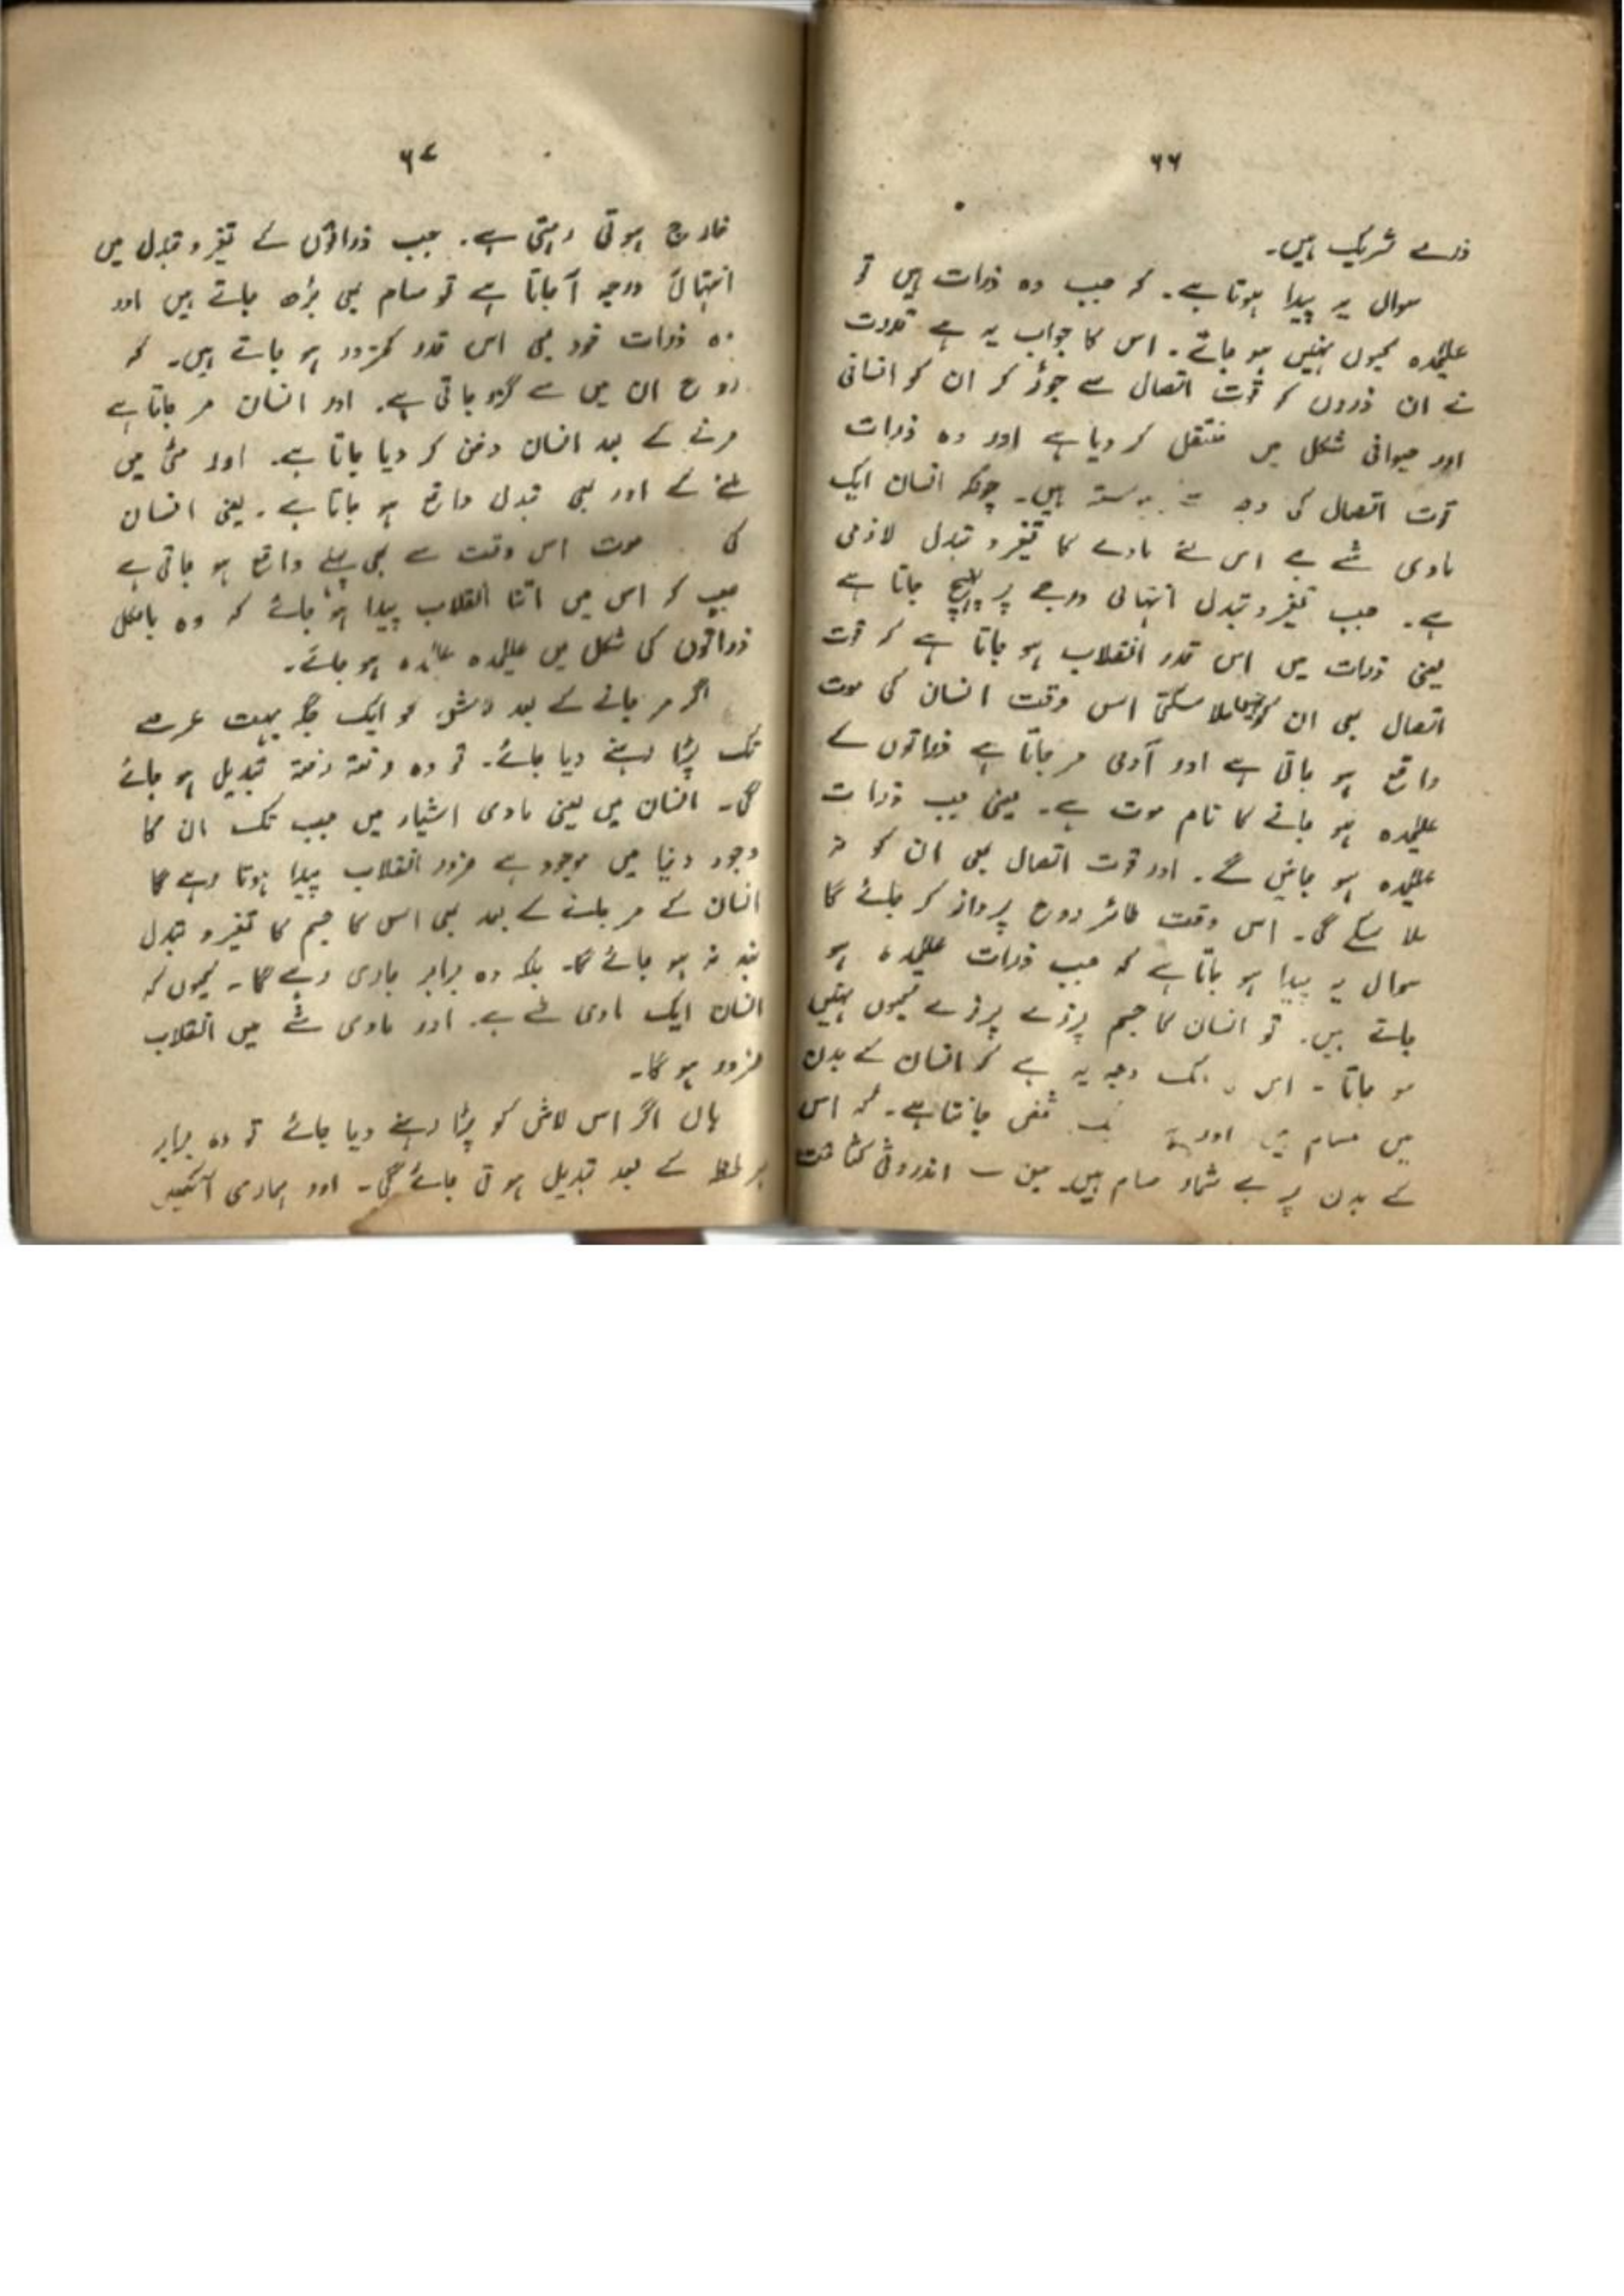 ۶۶
ذرے شریک ہیں۔
سوال یہ پیدا ہوتا ہے۔ کہ جب وہ ذرات ہیں تو
علیٰحدہ کیوں نہیں ہو جاتے۔ اس کا جواب یہ ہے قدرت
نے ان ذروں کو قوت اتصال سے جوڑ کر ان کو انسانی
اور حیوانی شکل میں منتقل کر دیا ہے اور وہ ذرات
قوت اتصال کی وجہ پیوستہ ہیں۔ چونکہ انسان ایک
مادی شے ہے اس لئے مادے کا تغیر و تبدل لازمی
ہے۔ جب تغیر و تبدل انتہائی درجے پر پہنچ جاتا ہے
یعنی ذرات میں اس قدر انقلاب ہو جاتا ہے کہ قوت
اتصال بھی ان کو نہیں ملا سکتی اس وقت انسان کی موت
واقع ہو جاتی ہے اور آدمی مر جاتا ہے ذراتوں کے
علیٰحدہ ہو جانے کا نام موت ہے۔ یعنی جب ذرات
علیٰحدہ ہو جائیں گے۔ اور قوت اتصال بھی ان کو نہ
ملا سکے گی۔ اس وقت طائر روح پرواز کر جائے گا
سوال یہ پیدا ہو جاتا ہے کہ جب ذرات علیٰحدہ ہو
جاتے ہیں۔ تو انسان کا جسم پرزے پرزے کیوں نہیں
ہو جاتا ۔ اس وجہ یہ ہے کہ انسان کے بدن
میں مسام ہیں اور شخص جانتا ہے۔ کہ اس
کے بدن پر بے شمار مسام ہیں۔ جن سے اندرونی کثافت
۶۷
خارج ہوتی رہتی ہے۔ جب ذراتوں کے تغیر و تبدل میں
انتہائی درجہ آ جاتا ہے تو مسام بھی بڑھ جاتے ہیں اور
وہ ذرات خود بھی اس قدر کمزور ہو جاتے ہیں۔ کہ
روح ان میں سے گزر جاتی ہے۔ اور انسان مر جاتا ہے
مرنے کے بعد انسان دفن کر دیا جاتا ہے۔ اور مٹی میں
ملنے کے اور بھی تبدل واقع ہو جاتا ہے۔ یعنی انسان
کی موت اس وقت سے بھی پہلے واقع ہو جاتی ہے
جب کہ اس میں اتنا انقلاب پیدا ہو جائے کہ وہ بالکل
ذراتوں کی شکل میں علیٰحدہ علیٰحدہ ہو جائے۔
اگر مر جانے کے بعد لاش کو ایک جگہ بہت عرصے
تک پڑا رہنے دیا جائے۔ تو وہ رفتہ رفتہ تبدیل ہو جائے
گی۔ انسان میں یعنی مادی اشیاء میں جب تک ان کا
وجود دنیا میں موجود ہے ضرور انقلاب پیدا ہوتا رہے گا
انسان کے مر جانے کے بعد بھی اس کا جسم کا تغیر و تبدل
بند نہ ہو جائے گا۔ بلکہ وہ برابر جاری رہے گا۔ کیوں کہ
انسان ایک مادی شے ہے۔ اور مادی شے میں انقلاب
ضرور ہو گا۔
ہاں اگر اس لاش کو پڑا رہنے دیا جائے تو وہ برابر
ہر لحظہ کے بعد تبدیل ہوتی جائے گی۔ اور ہماری آنکھیں